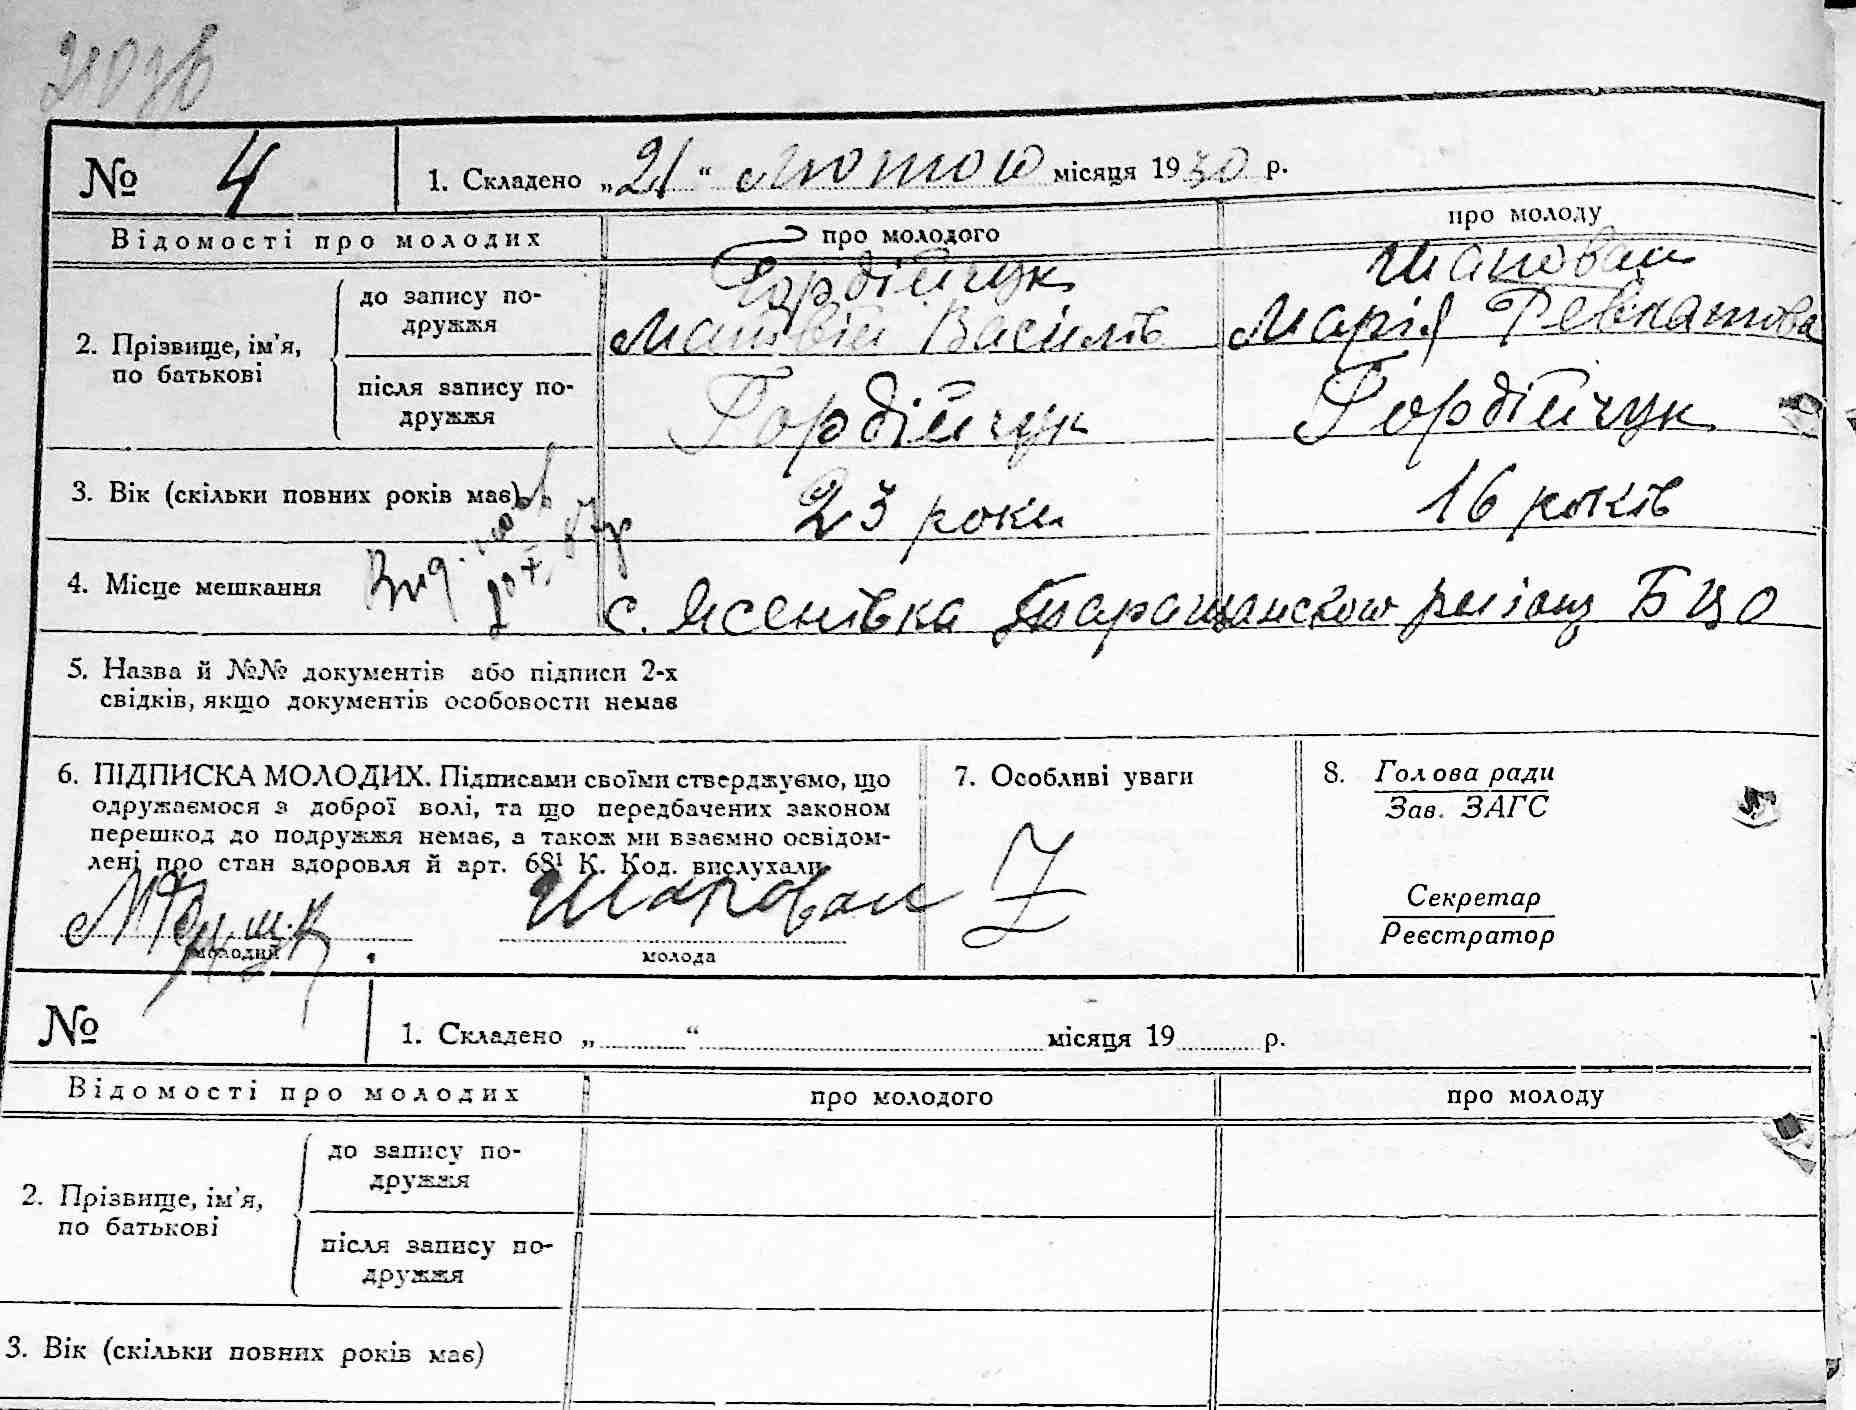 № 4 1. Складено „21“ Лютого місяця 1930 р.
Відомості про молодих про молодого про молоду
2. Прізвище, ім'я, по батькові
до запису по-
дружжя
Гордійчук
Матвій Василів
Шаповал
Марія
після запису по-
дружжя
Гордійчук
Гордійчук
3. Вік (скільки повних років має) 23 роки 16 років
4. Місце мешкання с. Ясенівка Таращанского БЦО
5. Назва й №№ документів або підписи 2-х
свідків, якщо документів особовости немає
6. ПІДПИСКА МОЛОДИХ. Підписами своїми стверджуємо, що
одружаємося з доброї волі, та що передбачених законом
перешкод до подружжя немає, а також ми взаємно освідом-
лені про стан здоровля й арт. 68¹ К. Код. вислухали
Шаповал
молодий молода
7. Особливі уваги
8. Голова ради
Зав. ЗАГС
Секретар
Реєстратор
№ 1. Складено „ “ місяця 19 р.
Відомості про молодих про молодого про молоду
2. Прізвище, ім'я,
по батькові
до запису по-
дружжя
після запису по-
дружжя
3. Вік (скільки повних років має)